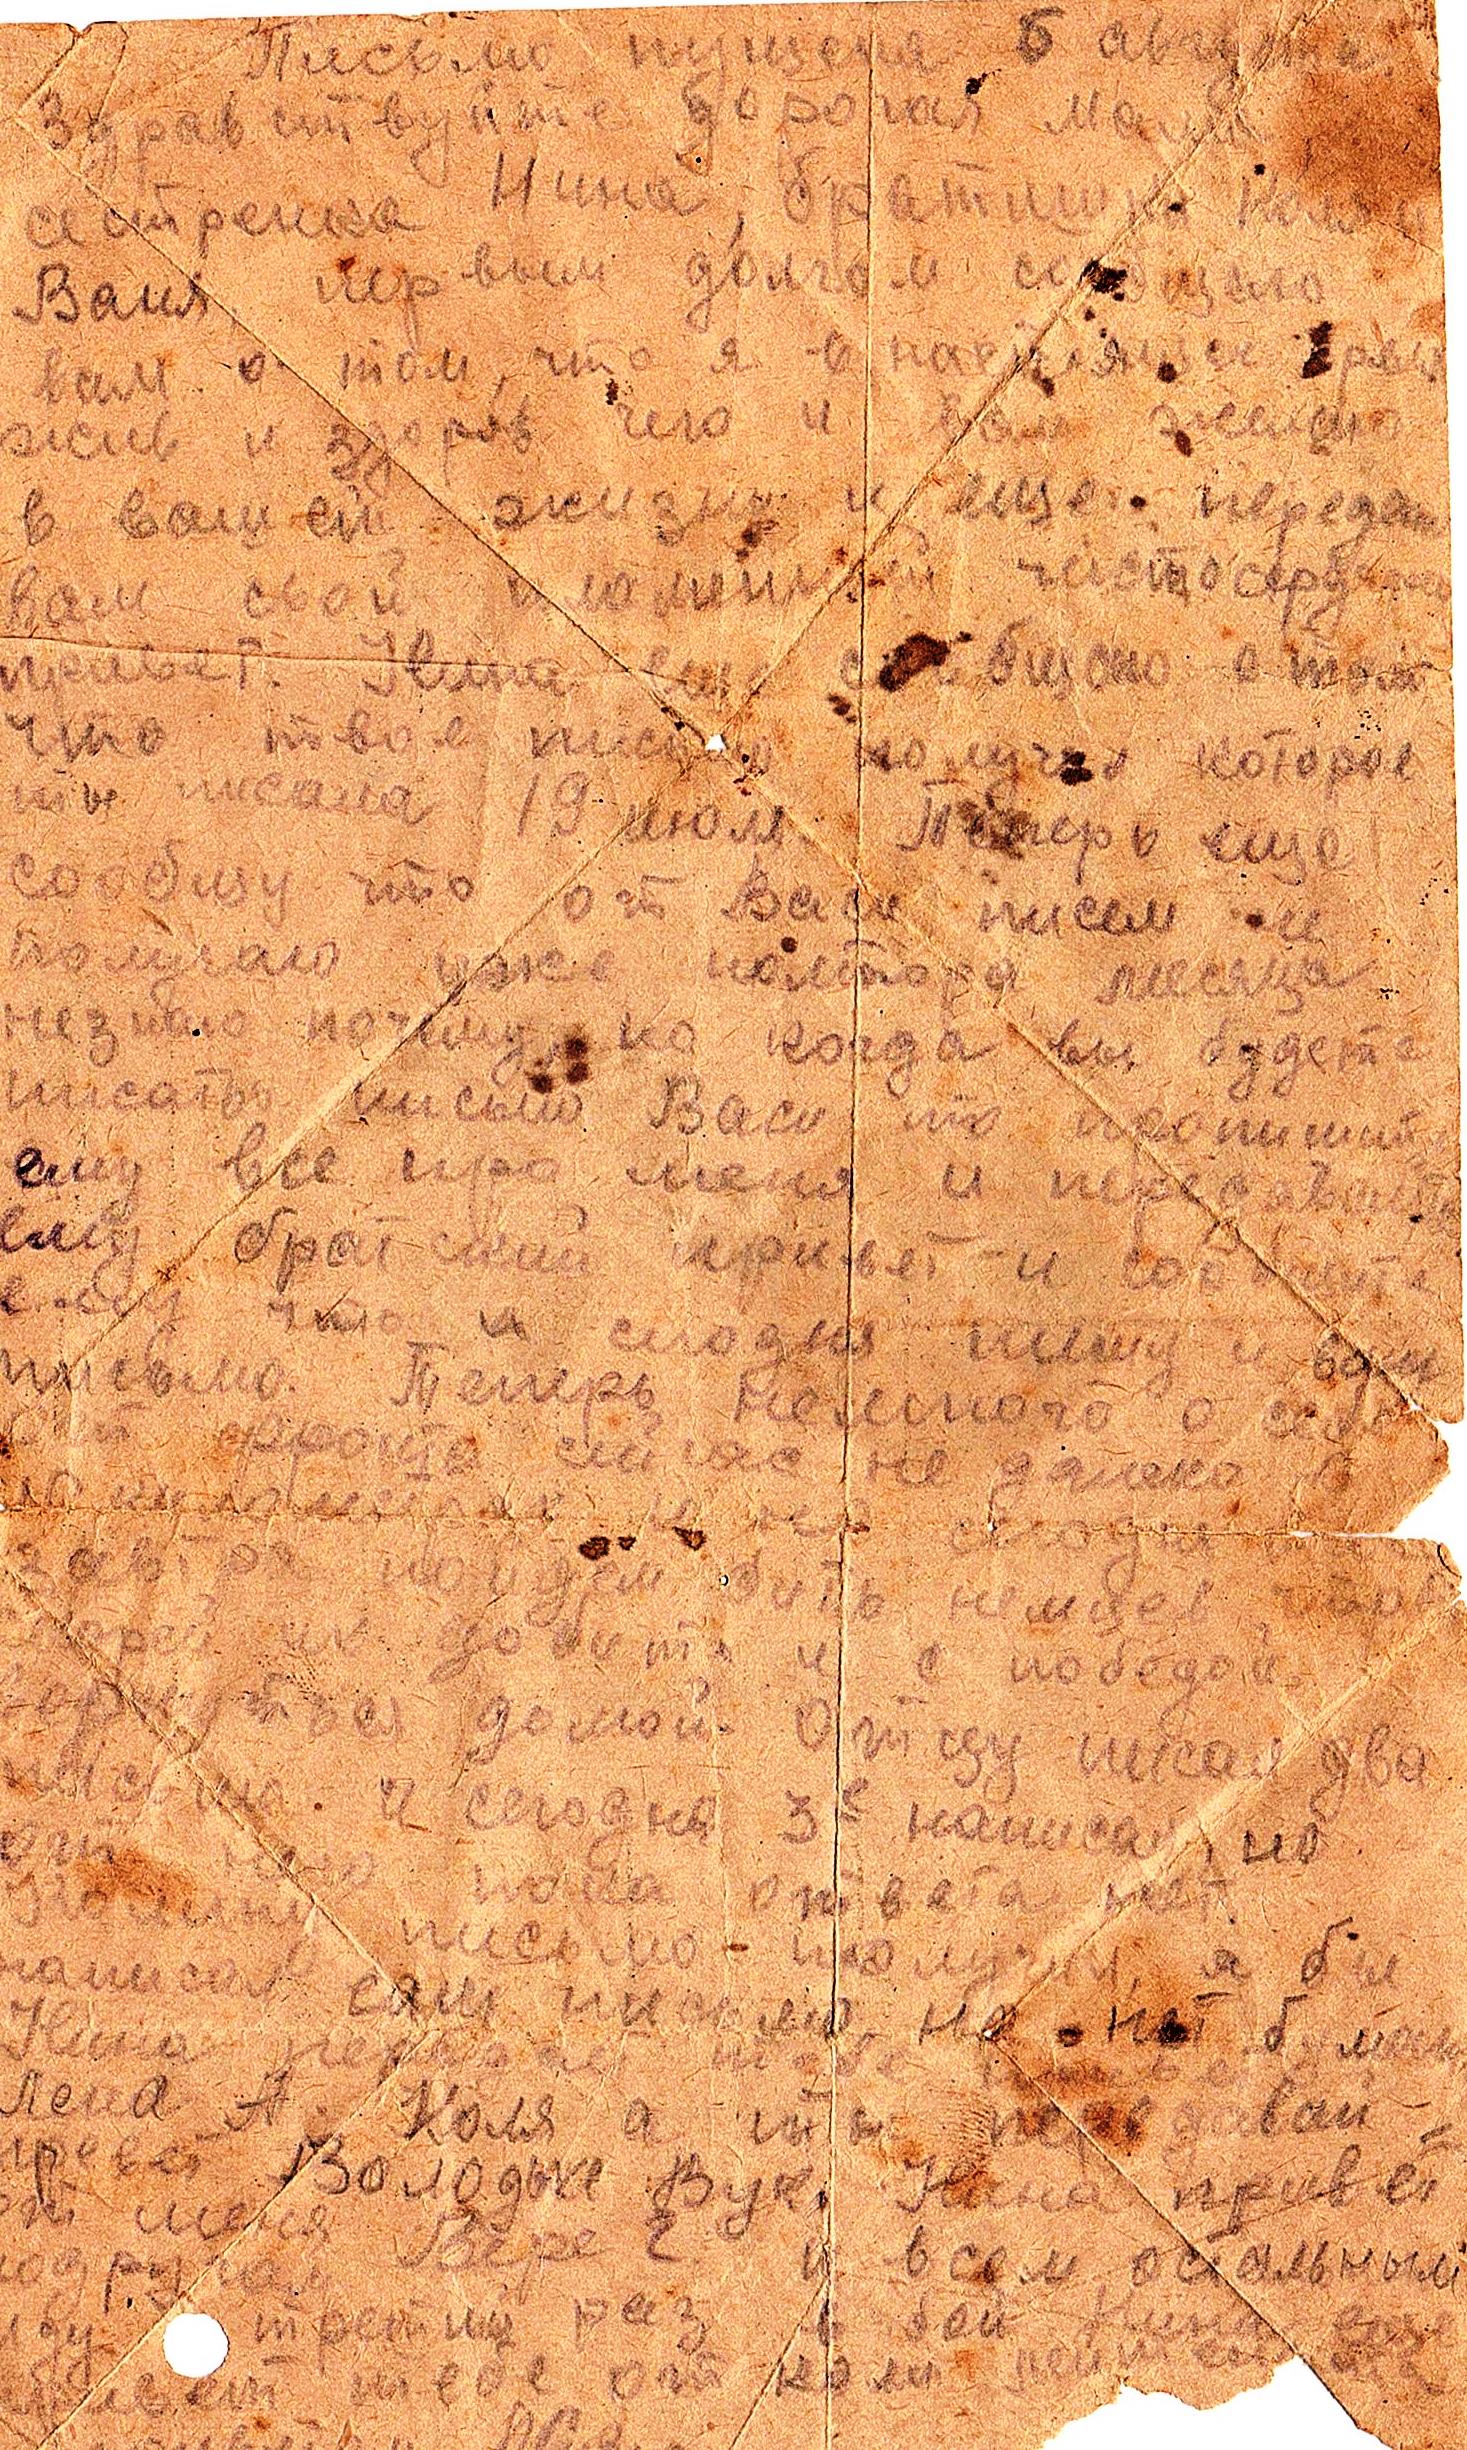 Письмо пущена 5 августа.
Здравствуйте дорогая мама
сестренка Нина, братишки Коля и
Ваня, первым долгом сообщаю
вам о том, что я в настоящее время
жив и здоров чего и вам желаю
в вашей жизни и еще передаю
вам свой пламенный чистосердечный
привет. Нина еще сообщаю о том
что твое письмо получил которое
ты писала 19 июля. Теперь еще
сообщу что от Васи писем не
получаю уже полтора месяца
незнаю почему, но когда вы будете
писать письмо Васи то пропишите
ему все про меня и передавайте
ему братский привет и сообщите
ему что и сегодня пишу и один
письмо. Теперь немного о себе
от фронта сейчас не далеко в
километрах сегодня
завтра пойдем бить немцев чтоб
скорей их добить и с победой
вернуться домой. Отцу писал два
письмо и сегодня 3е написал, но
от него пока ответа нет.
письмо получил, я бы
написал сам письмо, но нет бумаги
Нина передает тебе привет
Лена А. Коля а ты передавай
привет Володьке Вук. Нина привет
от меня Вере Г. и всем остальным
подругам
иду третий раз в бой Нина еще
привет тебе от